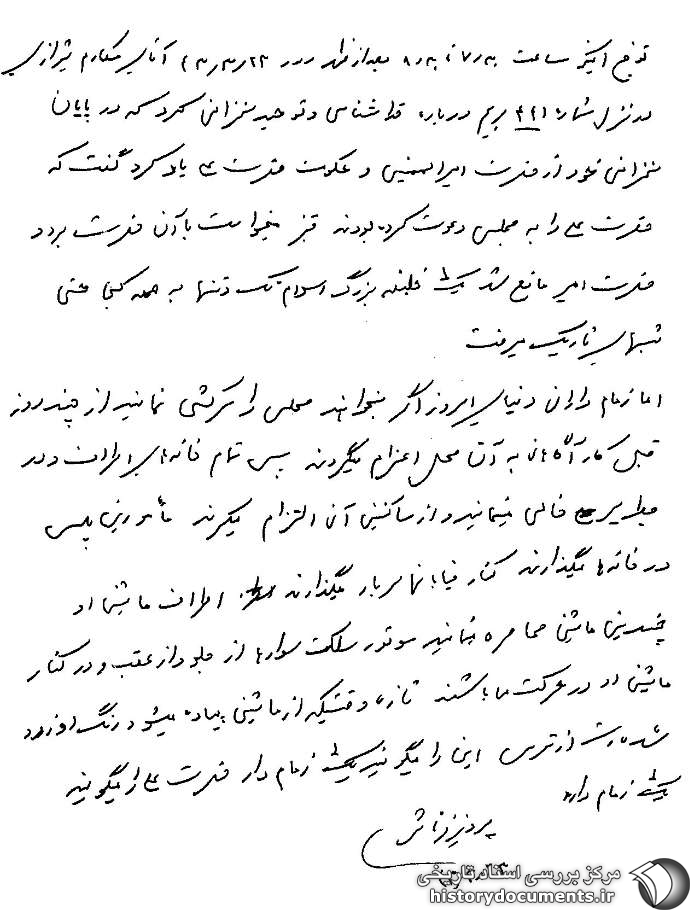 توضیح اینکه ساعت ۷ تا ۸ بعد از ظهر روز ۲۳/۳/ آقای مکارم شیرازی
در منزل شماره ۴۴۱ بریم درباره خداشناسی و توحید سخنرانی کرد که در پایان
سخنرانی خود از قدرت امیرالمومنین و حکومت قدرت علی یاد کرد گفت که
حضرت علی را به مجلسی دعوت کرده بودند قنبر میخواست با آن حضرت برود
حضرت امیر مانع شد یک خلیفه بزرگ اسلام تک و تنها به همه کجا حتی
شبهای تاریک میرفت
اما زمام داران دنیای امروز اگر بخواهند محلی را سرکشی نمایند از چند روز
قبل کارآگاهانی به آن محل اعزام میگردند پس تمام خانه های اطراف و در
مسیر خالی مینمایند و از ساکنین آن التزام میگیرند مأمورین پلیس
در خانه ها میگذارند کنار خیابانها سرباز میگذارند اطراف ماشین او
چندین ماشین محاصره مینمایند موتور سیکلت سوارها از جلو و از عقب و در کنار
ماشین او در حرکت میباشند تازه وقتیکه از ماشین پیاده میشود رنگ او زرد
شده است از ترس این را میگویند یک زمام دار حضرت علی را میگویند
یک زمام دار
مرکز بررسی اسناد تاریخی
historydocuments.ir